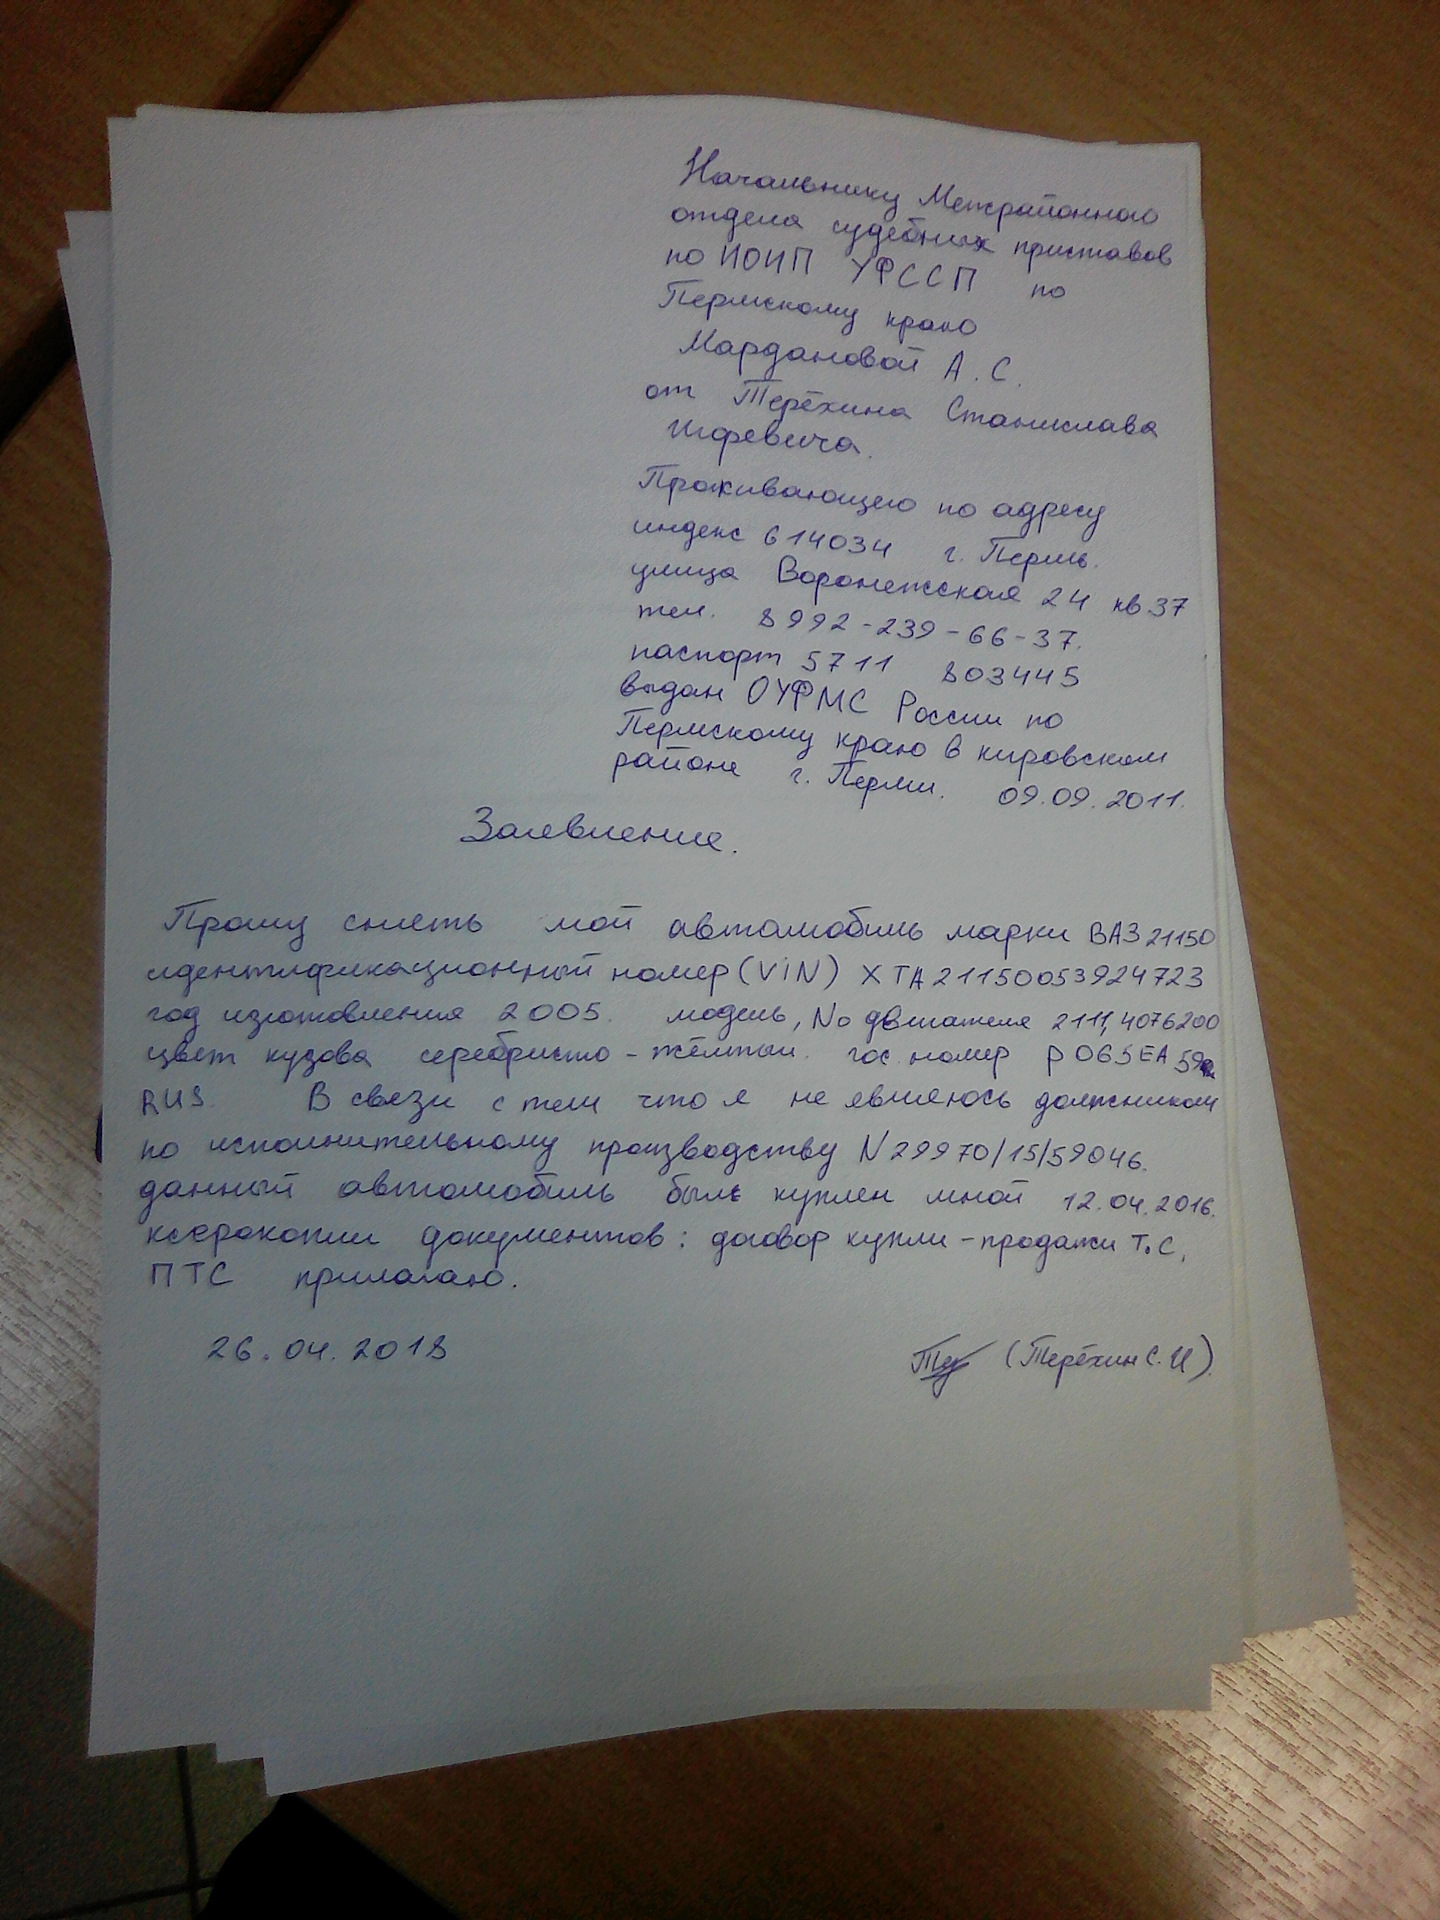 Начальнику Межрайонного
отдела судебных приставов
по ИОИП УФССП по
Пермскому краю
Мардановой А. С.
от Терёхина Станислава
Игоревича.
Проживающего по адресу
индекс 614034 г. Пермь.
улица Воронежская 24 кв 37
тел. 8992-239-66-37.
паспорт 5711 803445
выдан ОУФМС России по
Пермскому краю в кировском
районе г. Перми. 09.09.2011.
Заявление.
Прошу снять мой автомобиль марки ВАЗ 21150
идентификационный номер (VIN) XTA21150053924723
год изготовления 2005. модель, No двигателя 2111, 4076200
цвет кузова серебристо-жёлтый. гос. номер р 065 ЕА 59
RUS. В связи с тем что я не являюсь должником
по исполнительному производству N 29970/15/59046.
данный автомобиль был куплен мной 12.04.2016.
ксерокопии документов: договор купли-продажи Т.С,
ПТС прилагаю.
26.04.2018 (Терёхин С. И)